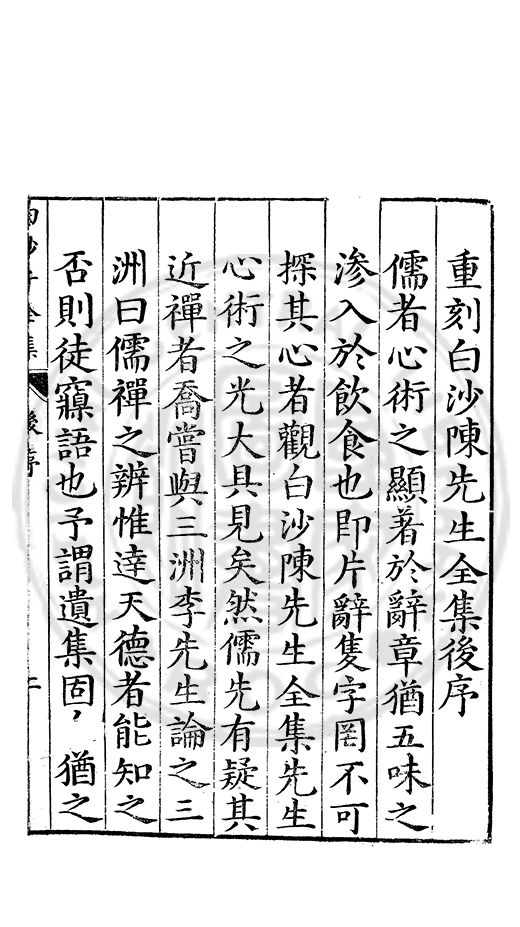 重刻白沙陳先生全集後序
儒者心術之顯著於辭章猶五味之
滲入於飲食也即片辭隻字罔不可
探其心者觀白沙陳先生全集先生
心術之光大具見矣然儒先有疑其
近禪者喬嘗與三洲李先生論之三
洲曰儒禪之辨惟達天德者能知之
否則徒寱語也予謂遺集固，猶之
白沙子全集 後序